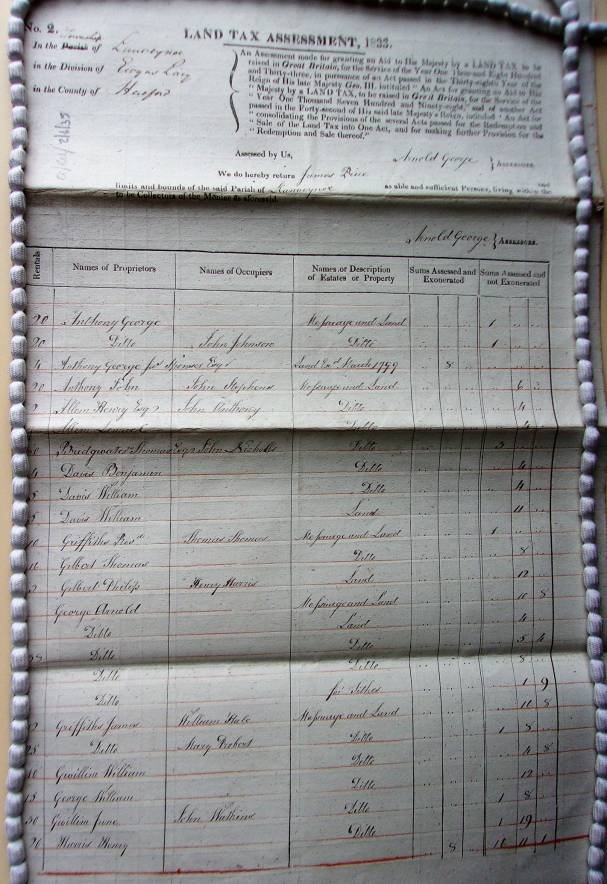 No. 2.
LAND TAX ASSESSMENT, 1833.
In the Parish of Township
in the Division of
in the County of Hereford
An Assessment made for granting an Aid to His Majesty by a LAND TAX to be
raised in Great Britain, for the Service of the Year One Thousand Eight Hundred
and Thirty-three, in pursuance of an Act passed in the Thirty-eighth Year of the
Reign of His late Majesty Geo. III. intituled "An Act for granting an Aid to His
"Majesty by a LAND TAX, to be raised in Great Britain, for the Service of the
"Year One Thousand Seven Hundred and Ninety-eight," and of another Act
passed in the Forty-second of His said late Majesty's Reign, intituled "An Act for
"consolidating the Provisions of the several Acts passed for the Redemption and
"Sale of the Land Tax into One Act, and for making further Provision for the
"Redemption and Sale thereof."
Assessed by Us, Arnold George } Assessors.
We do hereby return James
limits and bounds of the said Parish of as able and sufficient Persons, living within the
to be Collectors of the Monies as aforesaid.
Arnold George } Assessors.
Rentals Names of Proprietors Names of Occupiers Names or Description of Estates or Property Sums Assessed and Exonerated Sums Assessed and not Exonerated
20 Anthony George Messuage and Land 1
20 Ditto John Johnson Ditto 1
4 Anthony George for Esqr Land Exd March 1799 8
20 Anthony John John Stephens Messuage and Land 6
Allen Henry Esqr John Anthony Ditto 4
Ditto 4
Bridgwater Thomas Esqr John Nicholls Ditto 3
4 Davis Benjamin Ditto 4
5 Davis William Ditto 4
5 Davis William Land 11
10 Griffiths Thomas Thomas Messuage and Land 1
16 Gilbert Thomas Ditto 8
Gilbert Philip Henry Harris Land 12
George Arnold Messuage and Land 10 8
Ditto Land 4
28 Ditto Ditto 5 4
Ditto Ditto 8
Ditto for Tithes 1 9
Griffiths James William Hale Messuage and Land 11 8
25 Ditto Mary Probert Ditto 1 8
10 Gwillim William Ditto 4 8
15 George William Ditto 12
30 Gwillim June John Watkins Ditto 1 8
20 Morris Henry Ditto 1 19
8 16 11 1